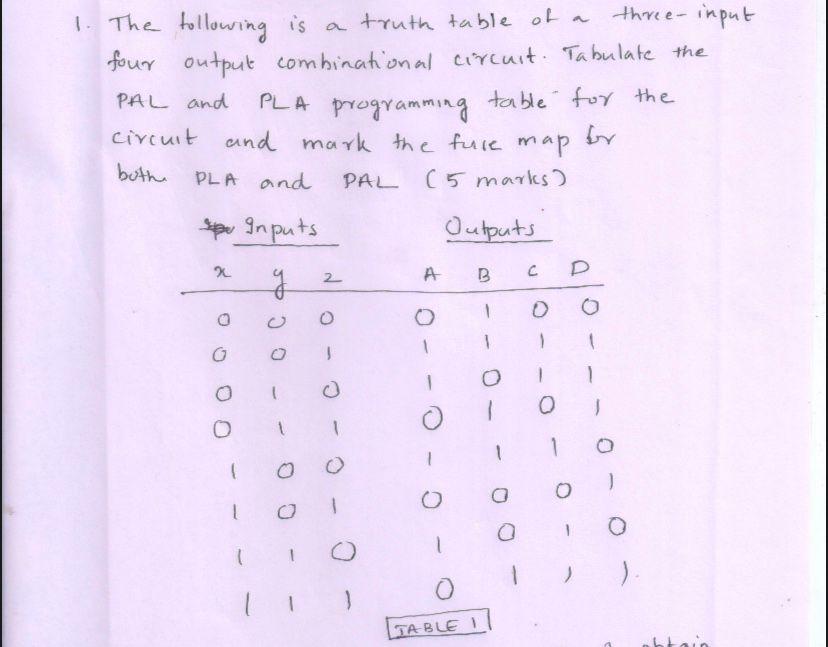 1. The following is a truth table of a three-input
four output combinational circuit. Tabulate the
PAL and PLA programming table for the
circuit and mark the fuse map for
both PLA and PAL (5 marks)
Inputs Outputs
x y z A B C D
0 0 0 0 1 0 0
0 0 1 1 1 1 1
0 1 0 1 0 1 1
0 1 1 0 1 0 1
1 0 0 1 1 1 0
1 0 1 0 0 0 1
1 1 0 1 0 1 0
1 1 1 0 1 1 1
TABLE 1
obtain